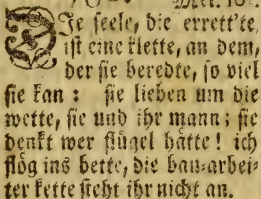 Mel. 18
Die seele, die errett'te,
ist eine klette, an dem,
der sie beredte, so viel
sie kan : sie lieben um die
wette, sie und ihr mann; sie
denkt wer flügel hätte! ich
flög ins bette, die bau-arbei-
ter kette sicht ihr nicht an.